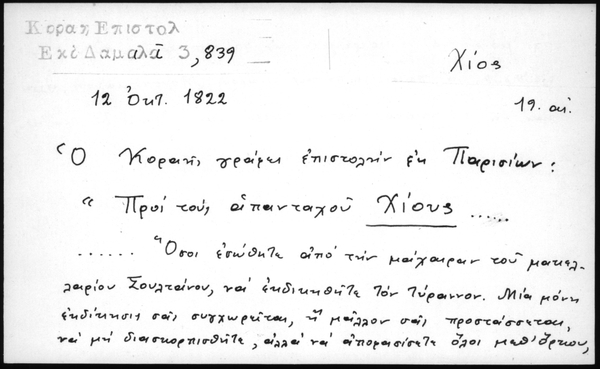 Κοραη Επιστολ
Εκδ Δαμαλᾶ 3,839
Χίος
12 Ὀκτ. 1822
19. αἰ.
Ὁ Κοραῆς γράφει ἐπιστολὴν ἐκ Παρισίων:
« Πρὸς τοὺς ἁπανταχοῦ Χίους .....
...... Ὅσοι ἐσώθητε ἀπὸ τὴν μάχαιραν τοῦ μακελ-
λαρίου Σουλτάνου, νὰ ἐκδικηθῆτε τὸν τύραννον. Μία μόνη
ἐκδίκησις σᾶς συγχωρεῖται, ἢ μᾶλλον σᾶς προστάσσεται,
νὰ μὴ διασκορπισθῆτε, ἀλλὰ νὰ ἀποφασίσετε ὅλοι μεθ' ὅρκου,